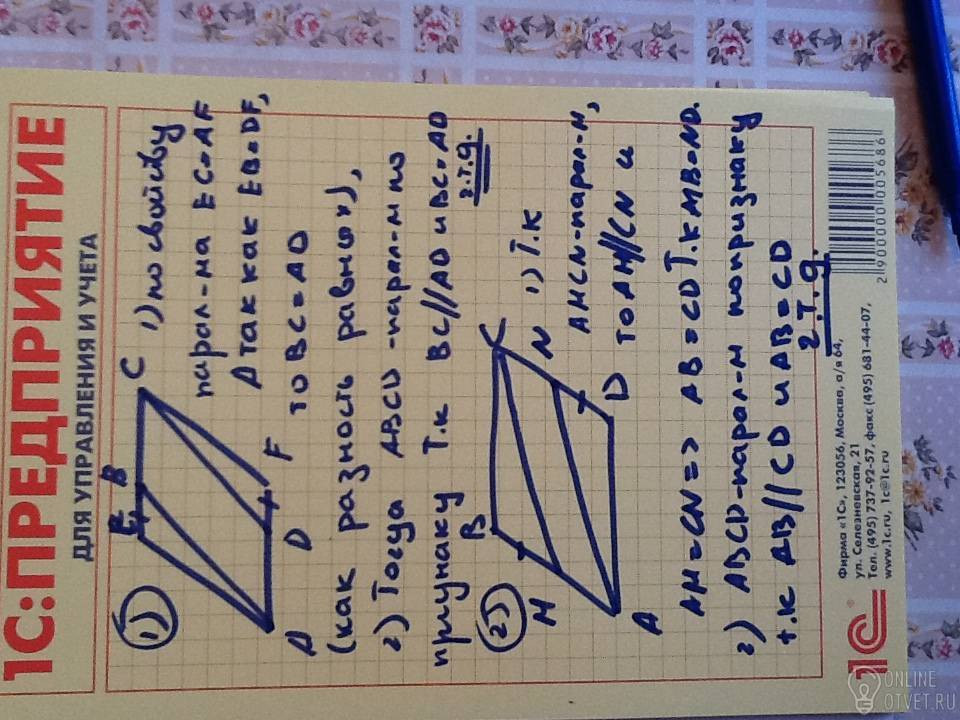 1С:ПРЕДПРИЯТИЕ
ДЛЯ УПРАВЛЕНИЯ И УЧЕТА
1)
E B C
A D F
1) по свойству
парал-ма EC=AF
А так как EB=DF,
то BC=AD
(как разность равных),
2) Тогда ABCD-парал-м по
признаку т.к BC//AD и BC=AD
ч.т.д.
2)
B C
M N
A D
1) Т.к
AMCN-парал-м,
то AM//CN и
AM=CN=> AB=CD т.к MB=ND.
2) ABCD-парал-м по признаку
т.к AB//CD и AB=CD
ч.т.д.
1С
Фирма «1С», 123056, Москва, а/я 64,
ул. Селезневская, 21
Тел. (495) 737-92-57, факс (495) 681-44-07,
www.1c.ru, 1c@1c.ru
2900000005686
ONLINE
OTVET.RU